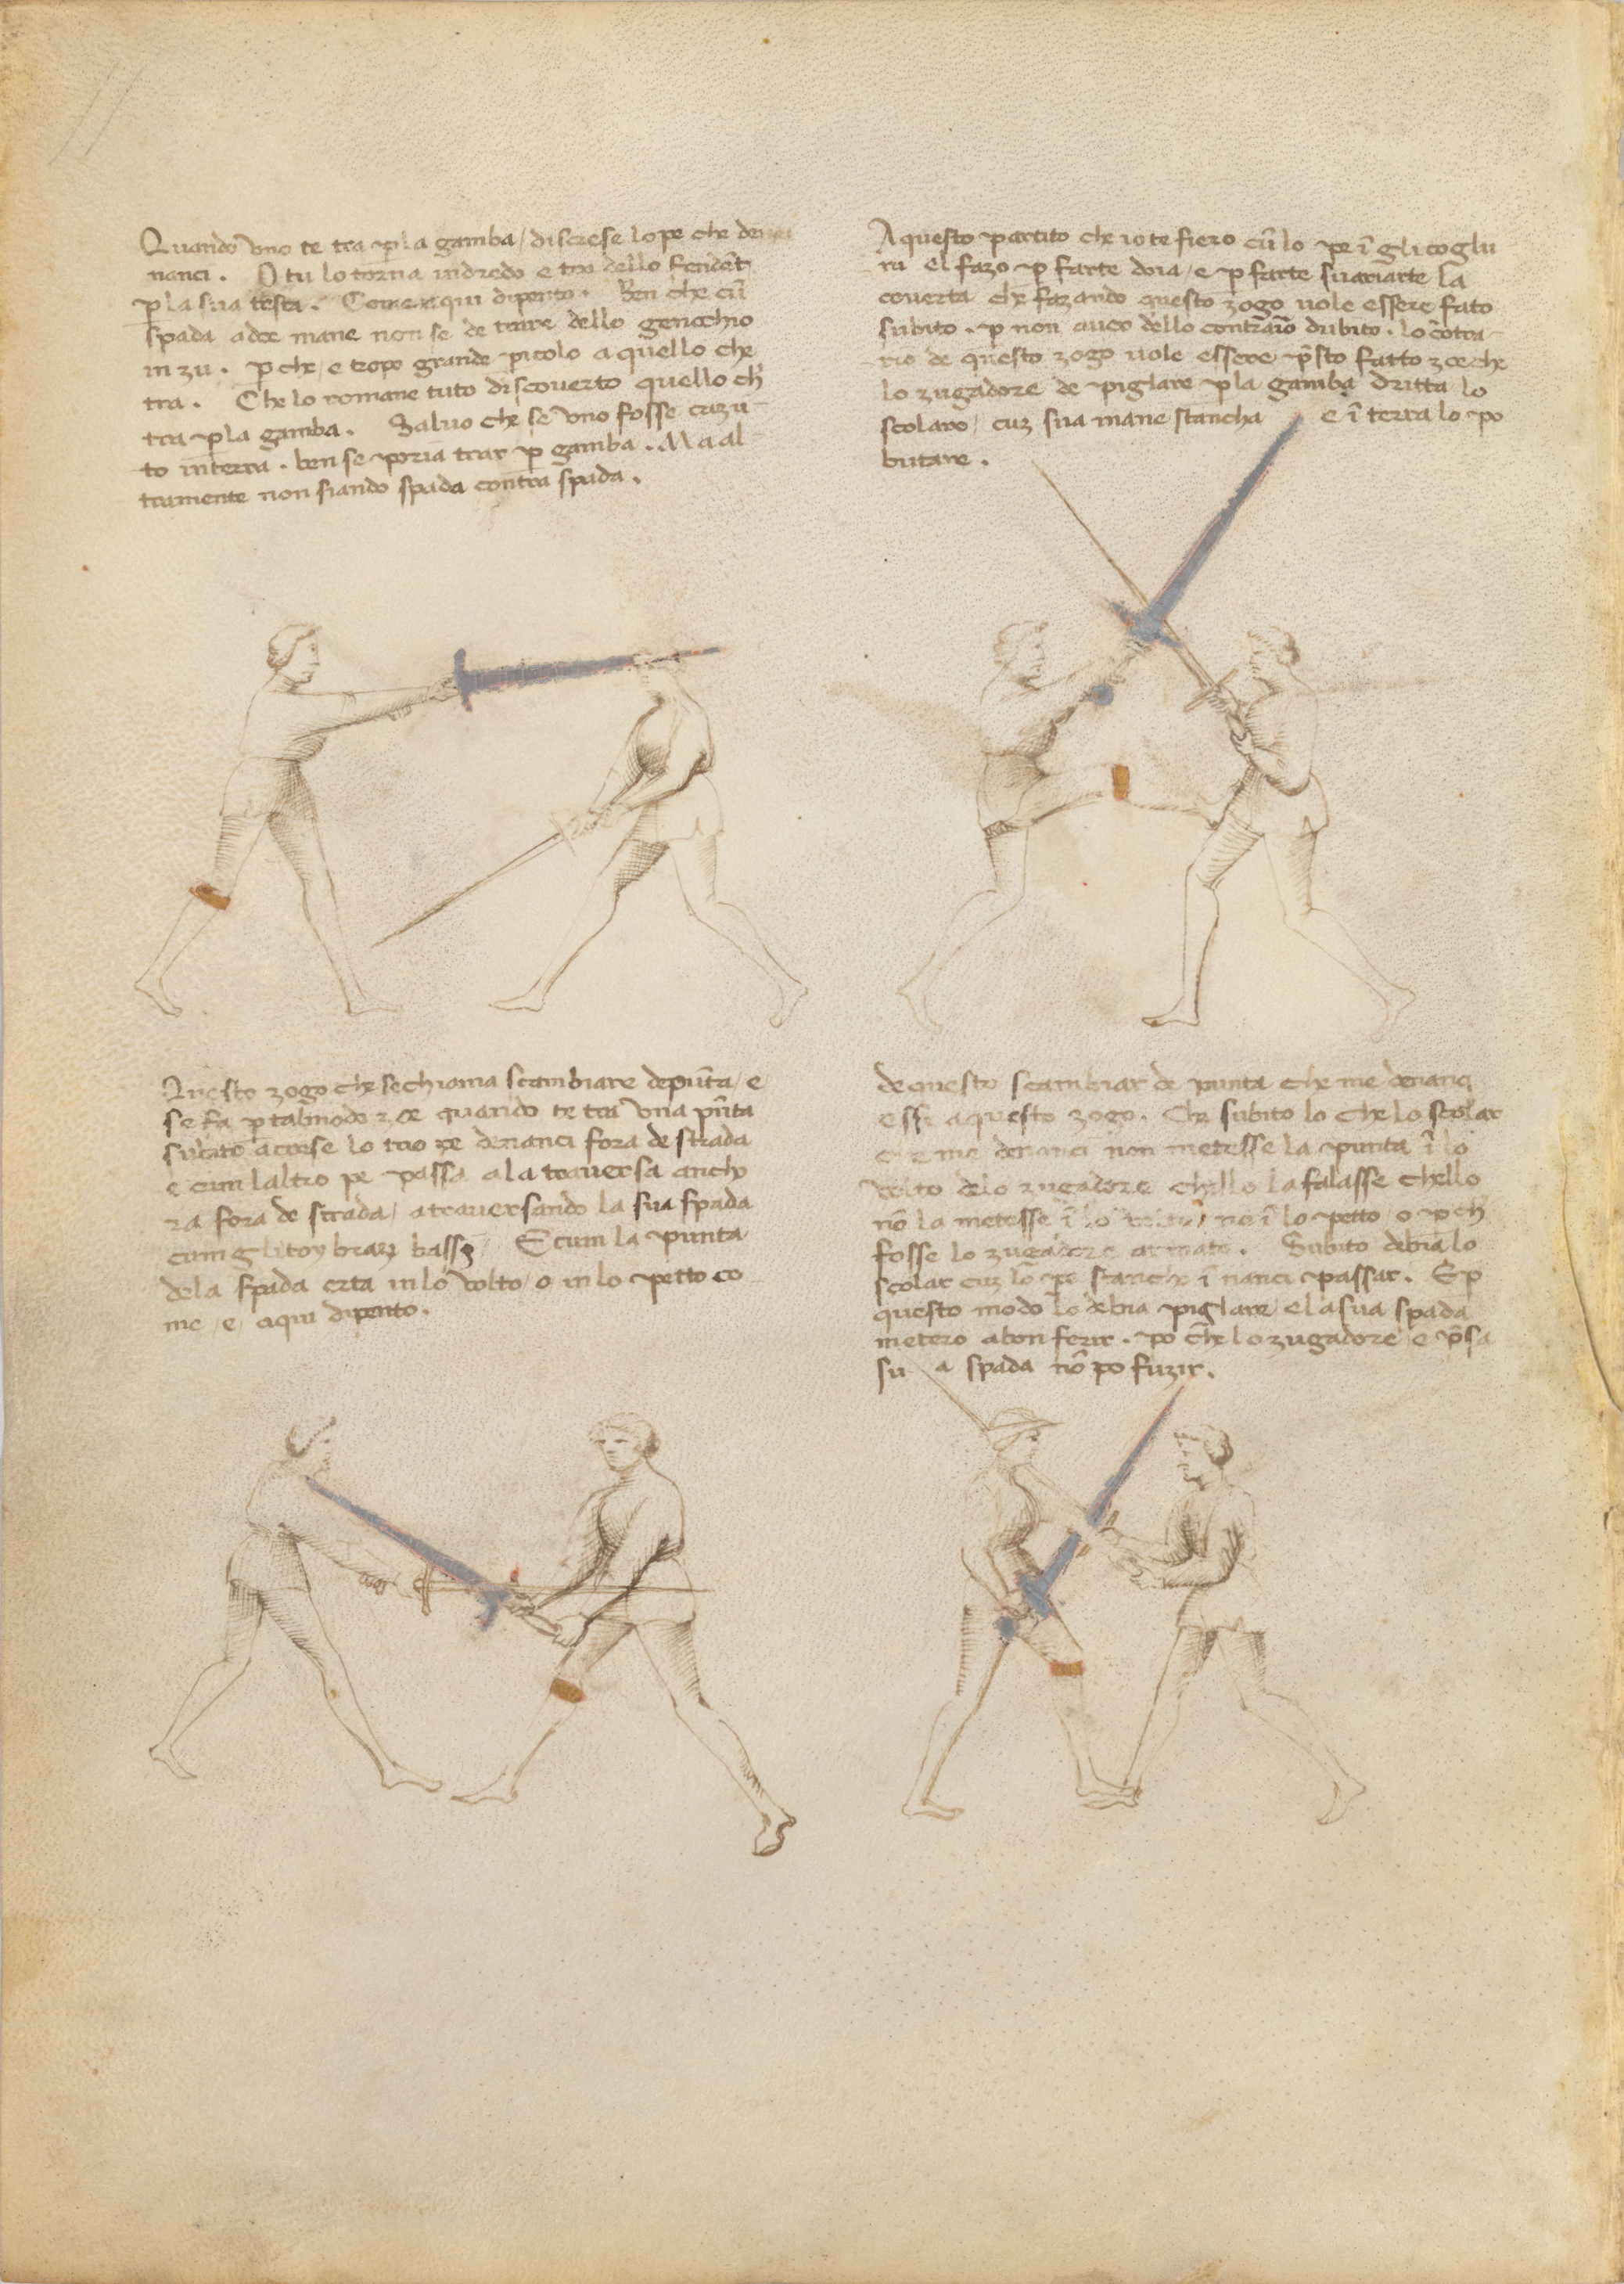 Quando uno te tra p la gamba / discrese lo pe che denan
nanci. O tu lo torna indredo e tra dello fendēt
p la sua testa. Come e qui dipento. Ben che cū
spada a doe mane non se de trare dello genochio
in zu. p che / e tropo grande picolo a quello che
tra. Che lo romane tuto discouerto quello ch̄
tra p la gamba. Saluo che se uno fosse cazu-
to in terra. ben se poria trar p gamba. Ma al-
tramente non siando spada contra spada.
A questo partito che io te fiero cū lo pe ī gli coglu
ni el fazo p farte doia / e p farte suariarte la
couerta che fazando questo zogo uole essere fato
subito. p non auer dello contrario dubito. lo cōtra-
rio de questo zogo uole essere p̄sto fatto zoe che
lo zugadore de piglare p la gamba dritta lo
scolaro / cuz sua mane stancha e ī terra lo po
butare.
Questo zogo che se chiama scambiare de pūta / e
se fa p tal modo zoe quando te tra una pūta
subito acrese lo tuo pe denanci fora de strada
e cum laltro pe passa a la trauersa anche-
ra fora de strada / atrauersando la sua spada
cum gli toy brazi bassi / E cum la punta
de la spada erta in lo uolto / o in lo petto co-
me / e / aqui dipento.
de questo scambiar de punta che me denanci
essi aquesto zogo. Che subito lo che lo scolar
che me denanci non metesse la punta ī lo
uolto delo zugadore chello la falasse chello
nō la metesse ī lo uolto / ne ī lo petto / o p ch̄
fosse lo zugadore armato. Subito debia lo
scolar cuz lo pe stancho ī nanci passar. E p
questo modo lo debia piglare / e la sua spada
metere a bon ferir. po che lo zugadore e p̄sa
su a spada nō po fuzir.